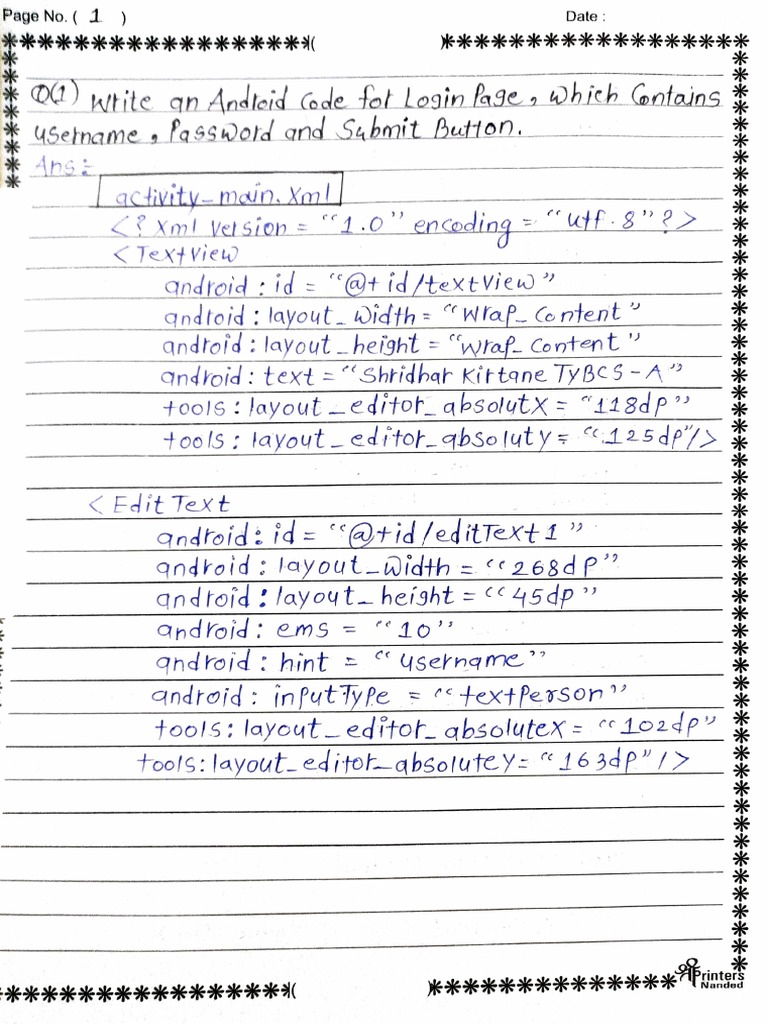 Page No. ( 1 )
Date :
Q(1) Write an Android Code for Login Page, which Contains
username, Password and Submit Button.
Ans:-
activity-main.xml
<? Xml version = "1.0" encoding = "utf.8" ?>
<TextView
android : id = "@+id/textView"
android : layout_width = "wrap_content"
android : layout_height = "wrap_content"
android : text = "Shridhar Kirtane TyBCS-A"
tools : layout_editor_absolutX = "118dp"
tools : layout_editor_absoluty = "125dp"/>
<EditText
android : id = "@+id/editText1"
android : layout_width = "268dp"
android : layout_height = "45dp"
android : ems = "10"
android : hint = "username"
android : inputType = "textPerson"
tools : layout_editor_absolutex = "102dp"
tools : layout_editor_absolutey = "163dp" />
Printers
Nanded